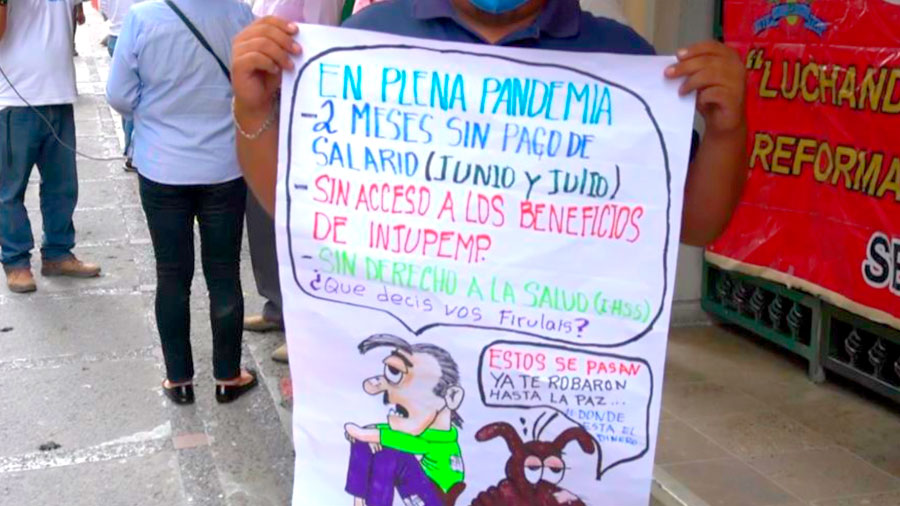 EN PLENA PANDEMIA
-2 MESES SIN PAGO DE
SALARIO (JUNIO Y JULIO)
- SIN ACCESO A LOS BENEFICIOS
DE INJUPEMP.
- SIN DERECHO A LA SALUD (IHSS)
¿Que decis vos Firulais?
ESTOS SE PASAN
YA TE ROBARON
HASTA LA PAZ...
"DONDE
ESTA EL
DINERO
"LUCHAND
REFORMA
SE